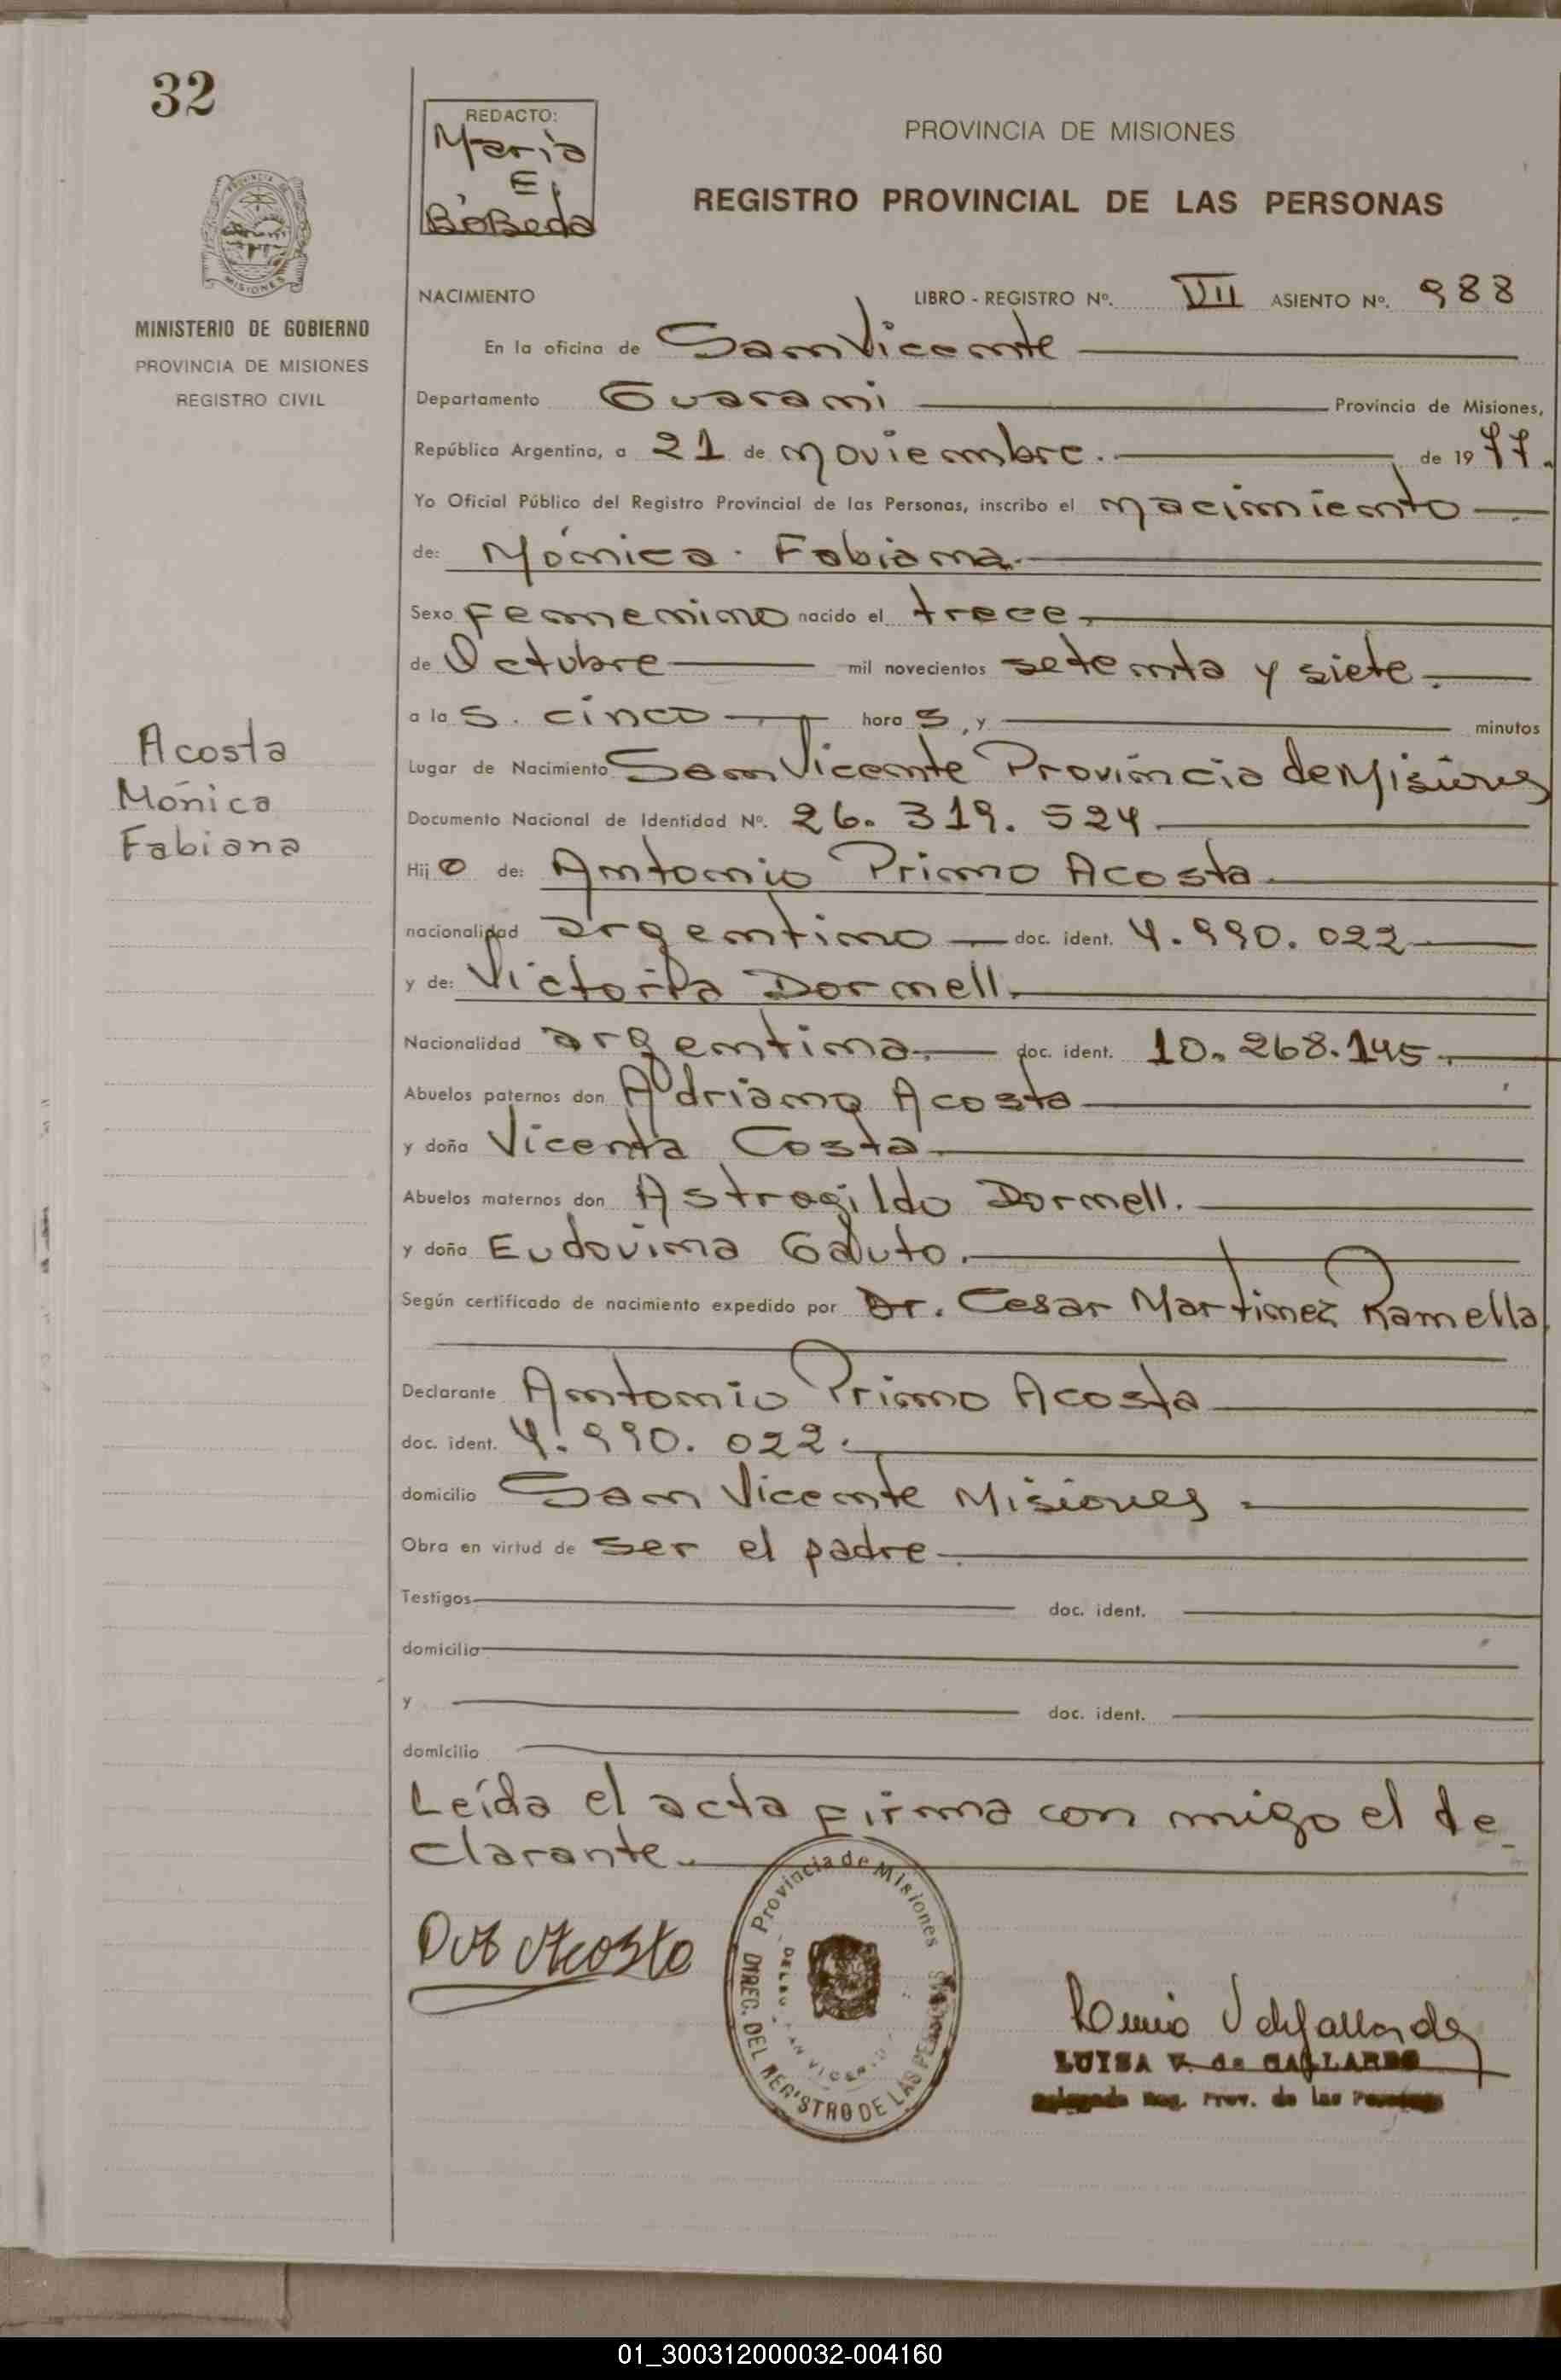 32
REDACTO:
Maria
E.
BoBeda
PROVINCIA DE MISIONES
REGISTRO PROVINCIAL DE LAS PERSONAS
MINISTERIO DE GOBIERNO
PROVINCIA DE MISIONES
REGISTRO CIVIL
NACIMIENTO LIBRO - REGISTRO Nº. VII ASIENTO Nº. 988
En la oficina de San Vicente
Departamento Guarani Provincia de Misiones,
República Argentina, a 21 de noviembre. de 1977.
Yo Oficial Público del Registro Provincial de las Personas, inscribo el nacimiento
de: Mónica Fabiana
Sexo femenino nacido el trece
de Octubre mil novecientos setenta y siete.
a las. cinco horas, y minutos
Lugar de Nacimiento San Vicente Provincia de Misiones
Documento Nacional de Identidad Nº. 26.319.524
Acosta
Mónica
Fabiana
Hijo de: Antonio Primo Acosta
nacionalidad argentino doc. ident. 4.990.022
y de: Victoria Dornell.
Nacionalidad argentina. doc. ident. 10.268.145.
Abuelos paternos don Adriano Acosta
y doña Vicenta Costa
Abuelos maternos don Astrogildo Dornell.
y doña Eudovina Galuto.
Según certificado de nacimiento expedido por Dr. Cesar Martinez Ramella
Declarante Antonio Primo Acosta
doc. ident. 4.990.022.
domicilio San Vicente Misiones
Obra en virtud de ser el padre
Testigos doc. ident.
domicilio
y doc. ident.
domicilio
Leída el acta firma con migo el de
clarante.
Acosta
Provincia de Misiones
DIREC. DEL REGISTRO DE LAS PERSONAS
LUISA V. de GALLARDO
Delegada Reg. Prov. de las Personas
01_300312000032-004160